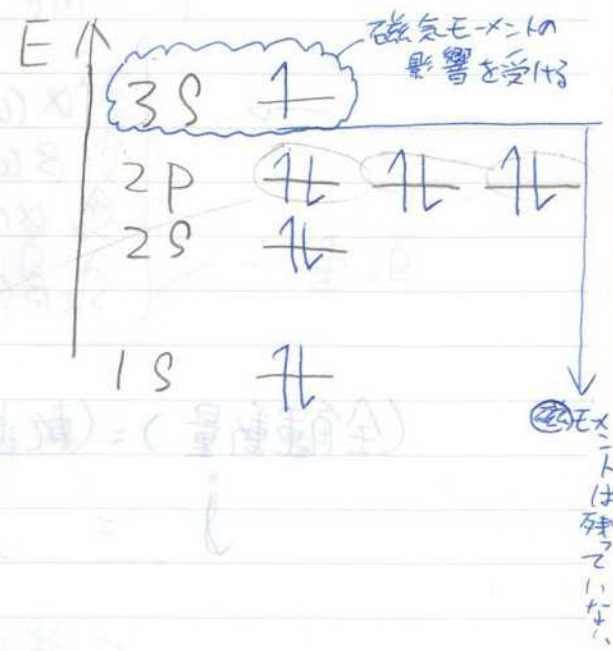 E
磁気モーメントの
影響を受ける
3S
2p
2S
1S
磁モーメントは残っていない